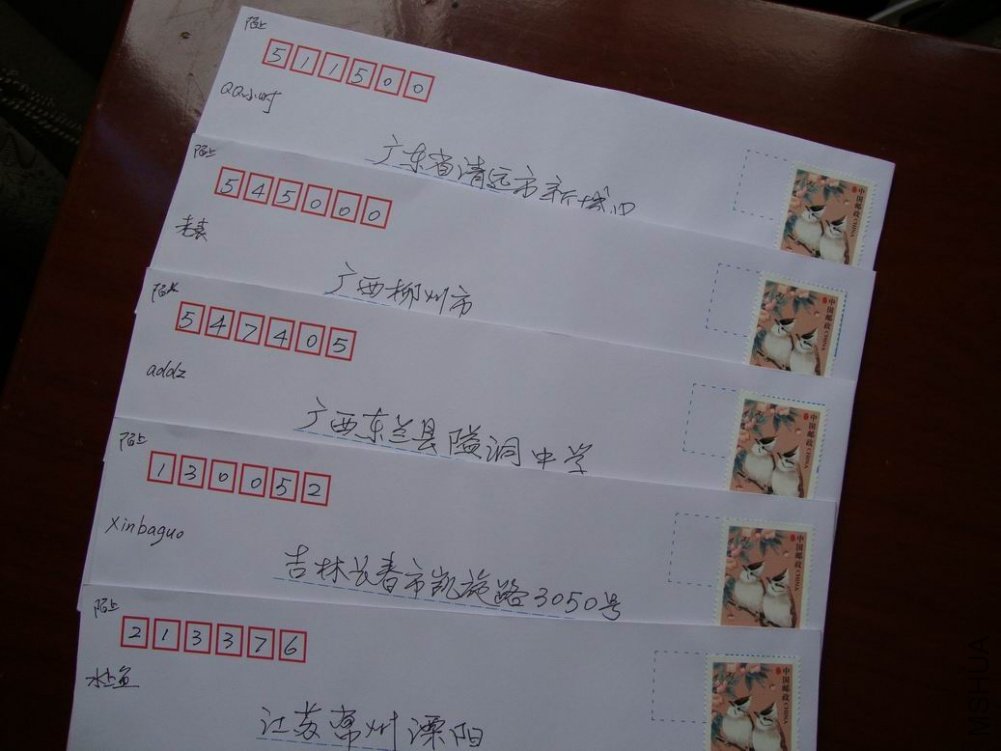 陌上
511500
QQ小时
广东省清远市新城
中国邮政 CHINA
陌上
545000
老袁
广西柳州市
中国邮政 CHINA
陌上
547405
addz
广西东兰县隘洞中学
中国邮政 CHINA
陌上
130052
xinbaguo
吉林长春市凯旋路3050号
中国邮政 CHINA
陌上
213376
水上鱼
江苏常州溧阳
中国邮政 CHINA
MSHUA